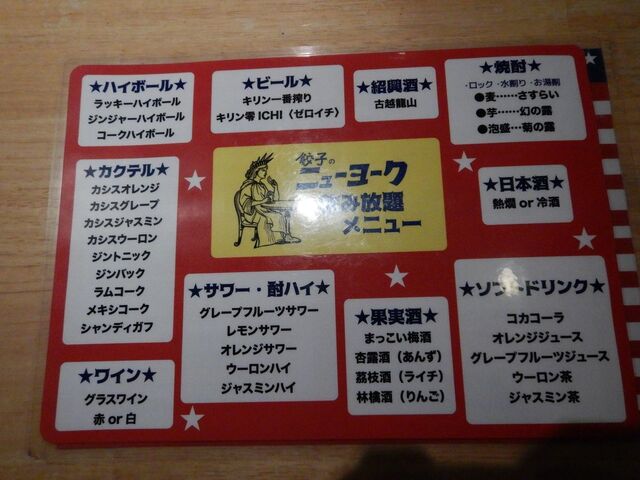 ★ハイボール★
ラッキーハイボール
ジンジャーハイボール
コークハイボール
★ビール★
キリン一番搾り
キリン零ICHI（ゼロイチ）
★紹興酒★
古越龍山
★焼酎★
・ロック・水割り・お湯割
●麦……さすらい
●芋……幻の露
●泡盛…菊の露
★カクテル★
カシスオレンジ
カシスグレープ
カシスジャスミン
カシスウーロン
ジントニック
ジンバック
ラムコーク
メキシコーク
シャンディガフ
餃子の
ニューヨーク
み放題
メニュー
★日本酒★
熱燗 or 冷酒
★サワー・酎ハイ★
グレープフルーツサワー
レモンサワー
オレンジサワー
ウーロンハイ
ジャスミンハイ
★果実酒★
まっこい梅酒
杏露酒（あんず）
茘枝酒（ライチ）
林檎酒（りんご）
★ソフトドリンク★
コカコーラ
オレンジジュース
グレープフルーツジュース
ウーロン茶
ジャスミン茶
★ワイン★
グラスワイン
赤 or 白